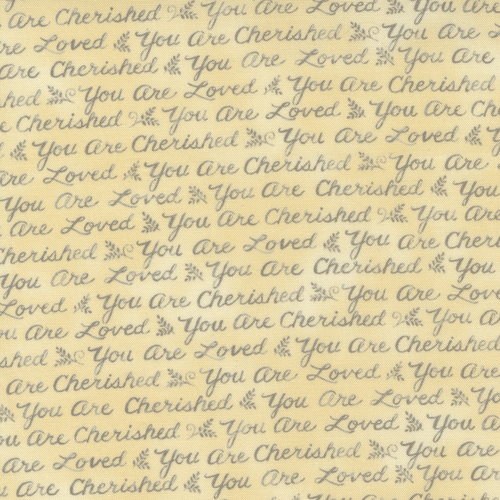 Are Cherished You Are Loved You Are
re Loved You Are Cherished You Are
Are Cherished You Are Loved You Are
shed You Are Loved You Are Cherished
e Cherished You Are Loved You Are
You Are Cherished You Are Loved
Are Loved You Are Cherished You Are
You Are Loved You Are Cherished You
Are Loved You Are Cherished You Are
Cherished You Are Loved You Are Cheri
You Are Loved You Are Cherished You
Loved You Are Cherished You Are Lov
ou Are Loved You Are Cherished You
shed You Are Loved You Are Cherished
Are Cherished You Are Loved You Are
You Are Cherished You Are Loved You
ou Are Cherished You Are Loved You Are
Are Loved You Are Cherished You Are
u Are Cherished You Are Loved You Are